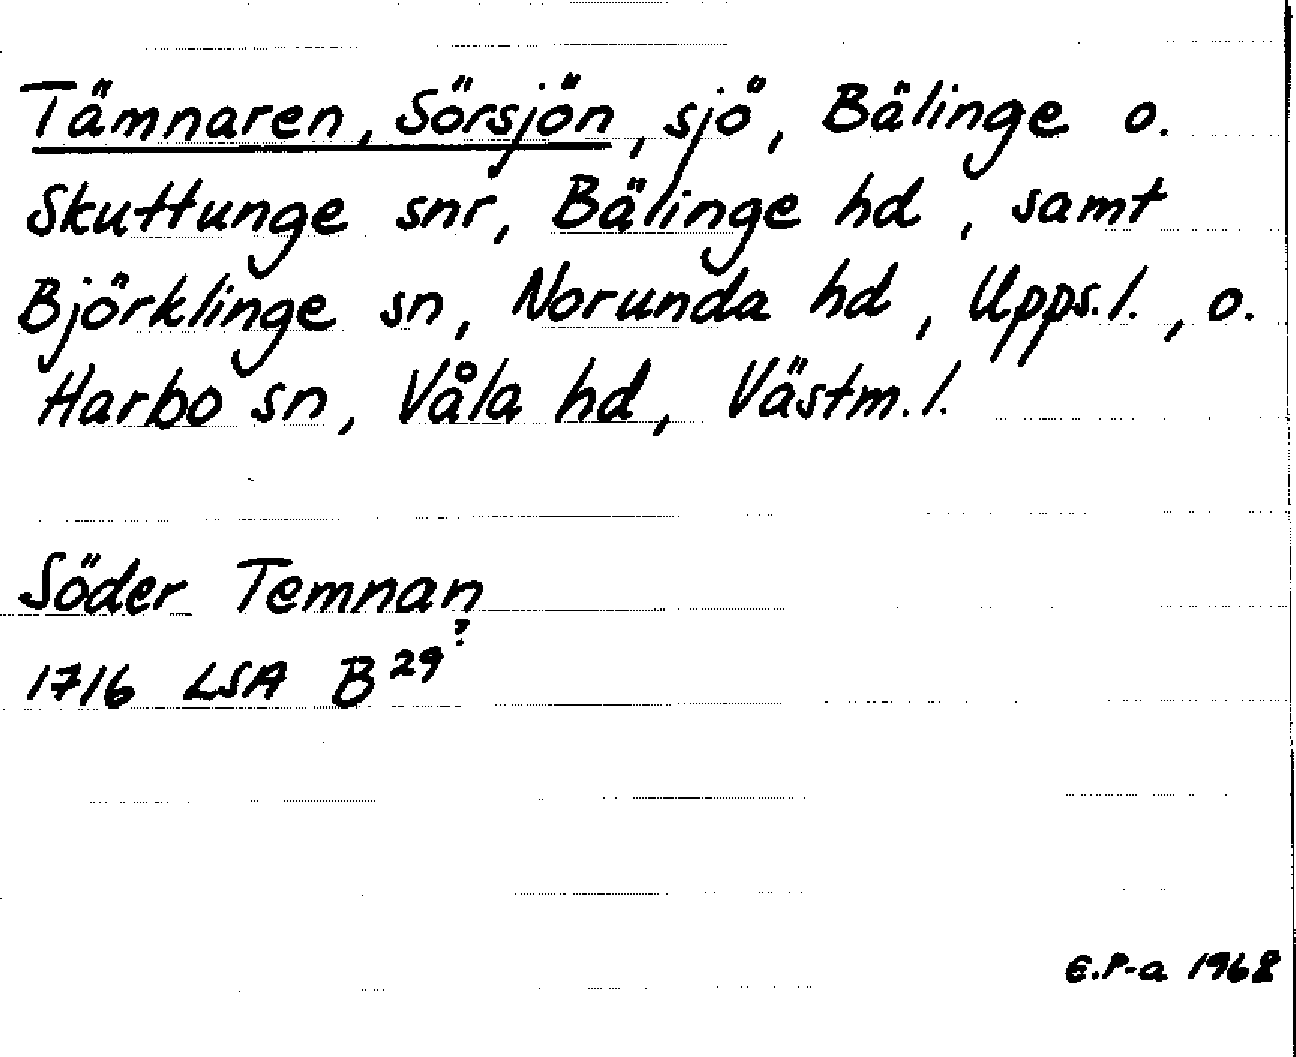 Tämnaren, Sörsjön, sjö, Bälinge o.
Skuttunge snr, Bälinge hd, samt
Björklinge sn, Norunda hd, Upps.l., o.
Harbo sn, Våla hd, Västm.l.
Söder Temnan
1716 LSA B 29?
E.P-a 1968